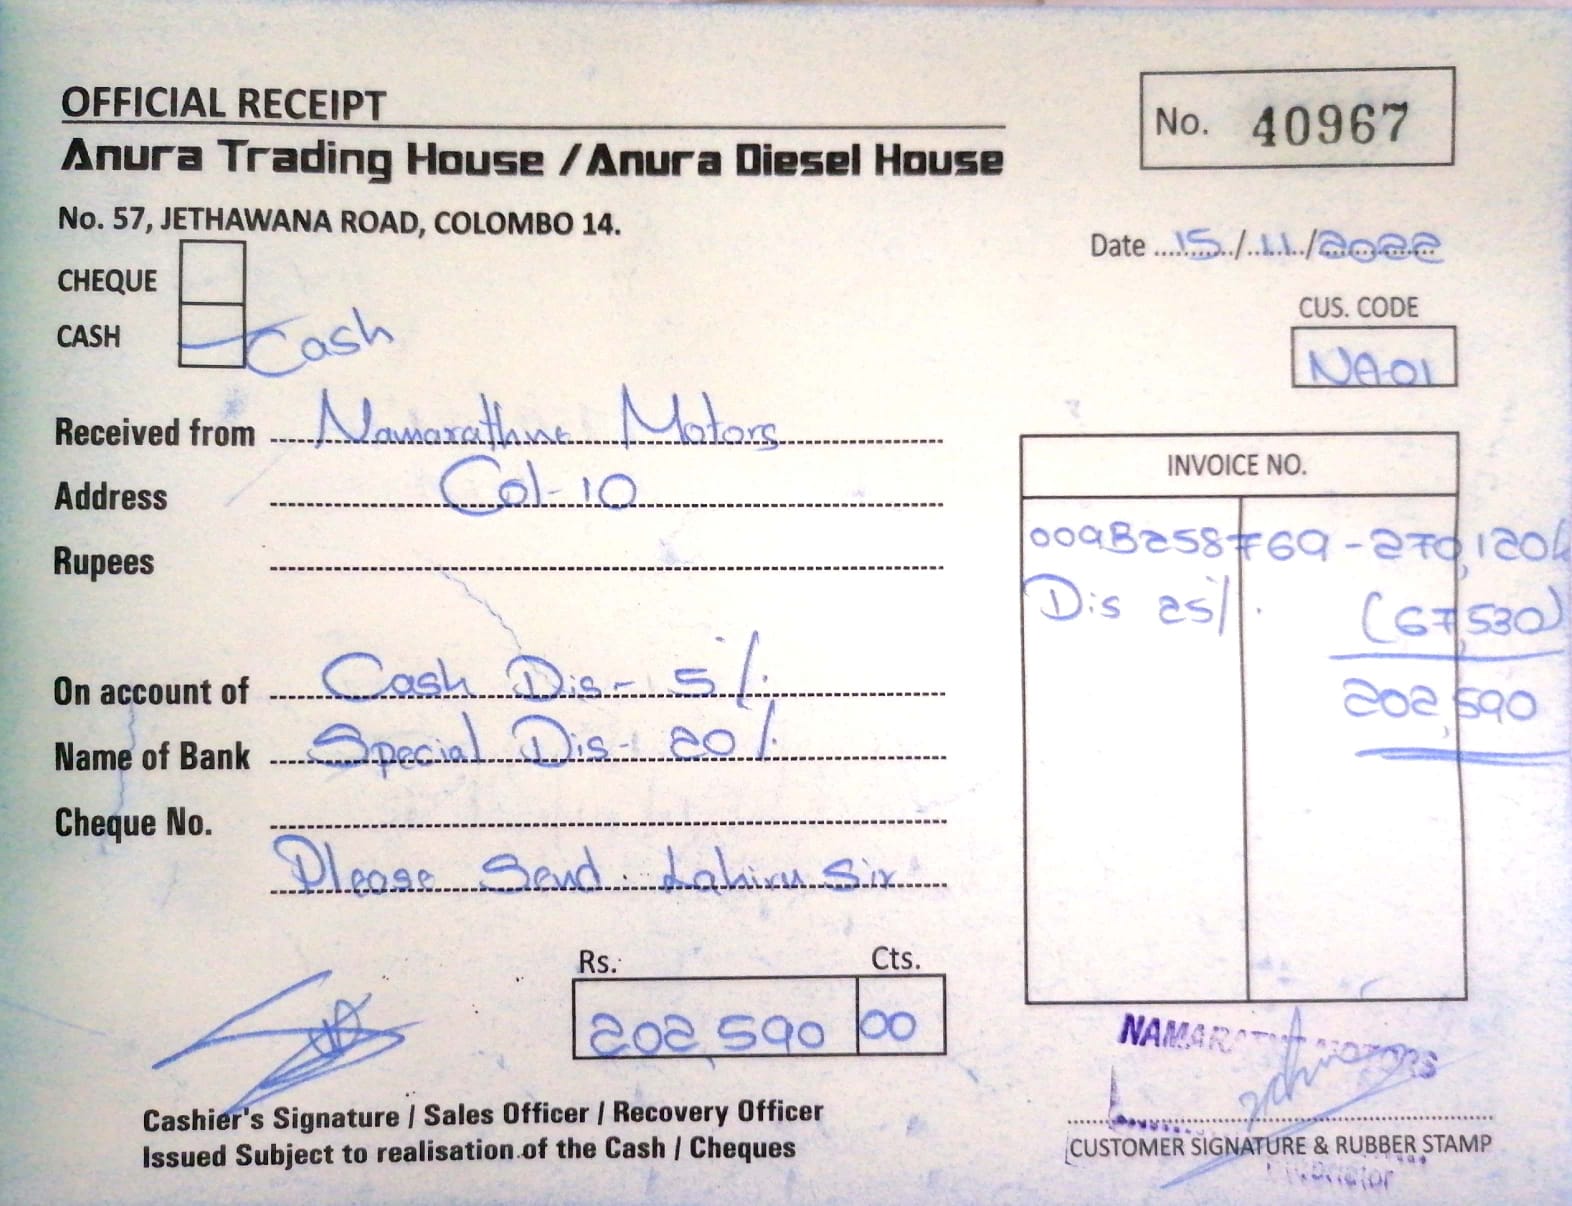 OFFICIAL RECEIPT
No. 40967
Anura Trading House / Anura Diesel House
No. 57, JETHAWANA ROAD, COLOMBO 14.
Date 15/11/2022
CHEQUE
CUS. CODE
CASH Cash
NA-01
Received from Namarathne Motors
Address Col-10
Rupees
INVOICE NO.
009B258769 - 270,120
Dis 25% (67,530)
202,590
On account of Cash Dis - 5%
Name of Bank Special Dis - 20%
Cheque No.
Please Send. Lahiru Sir
Rs. Cts.
202,590 00
NAMARATHNE MOTORS
Cashier's Signature / Sales Officer / Recovery Officer
Issued Subject to realisation of the Cash / Cheques
CUSTOMER SIGNATURE & RUBBER STAMP
Proprietor